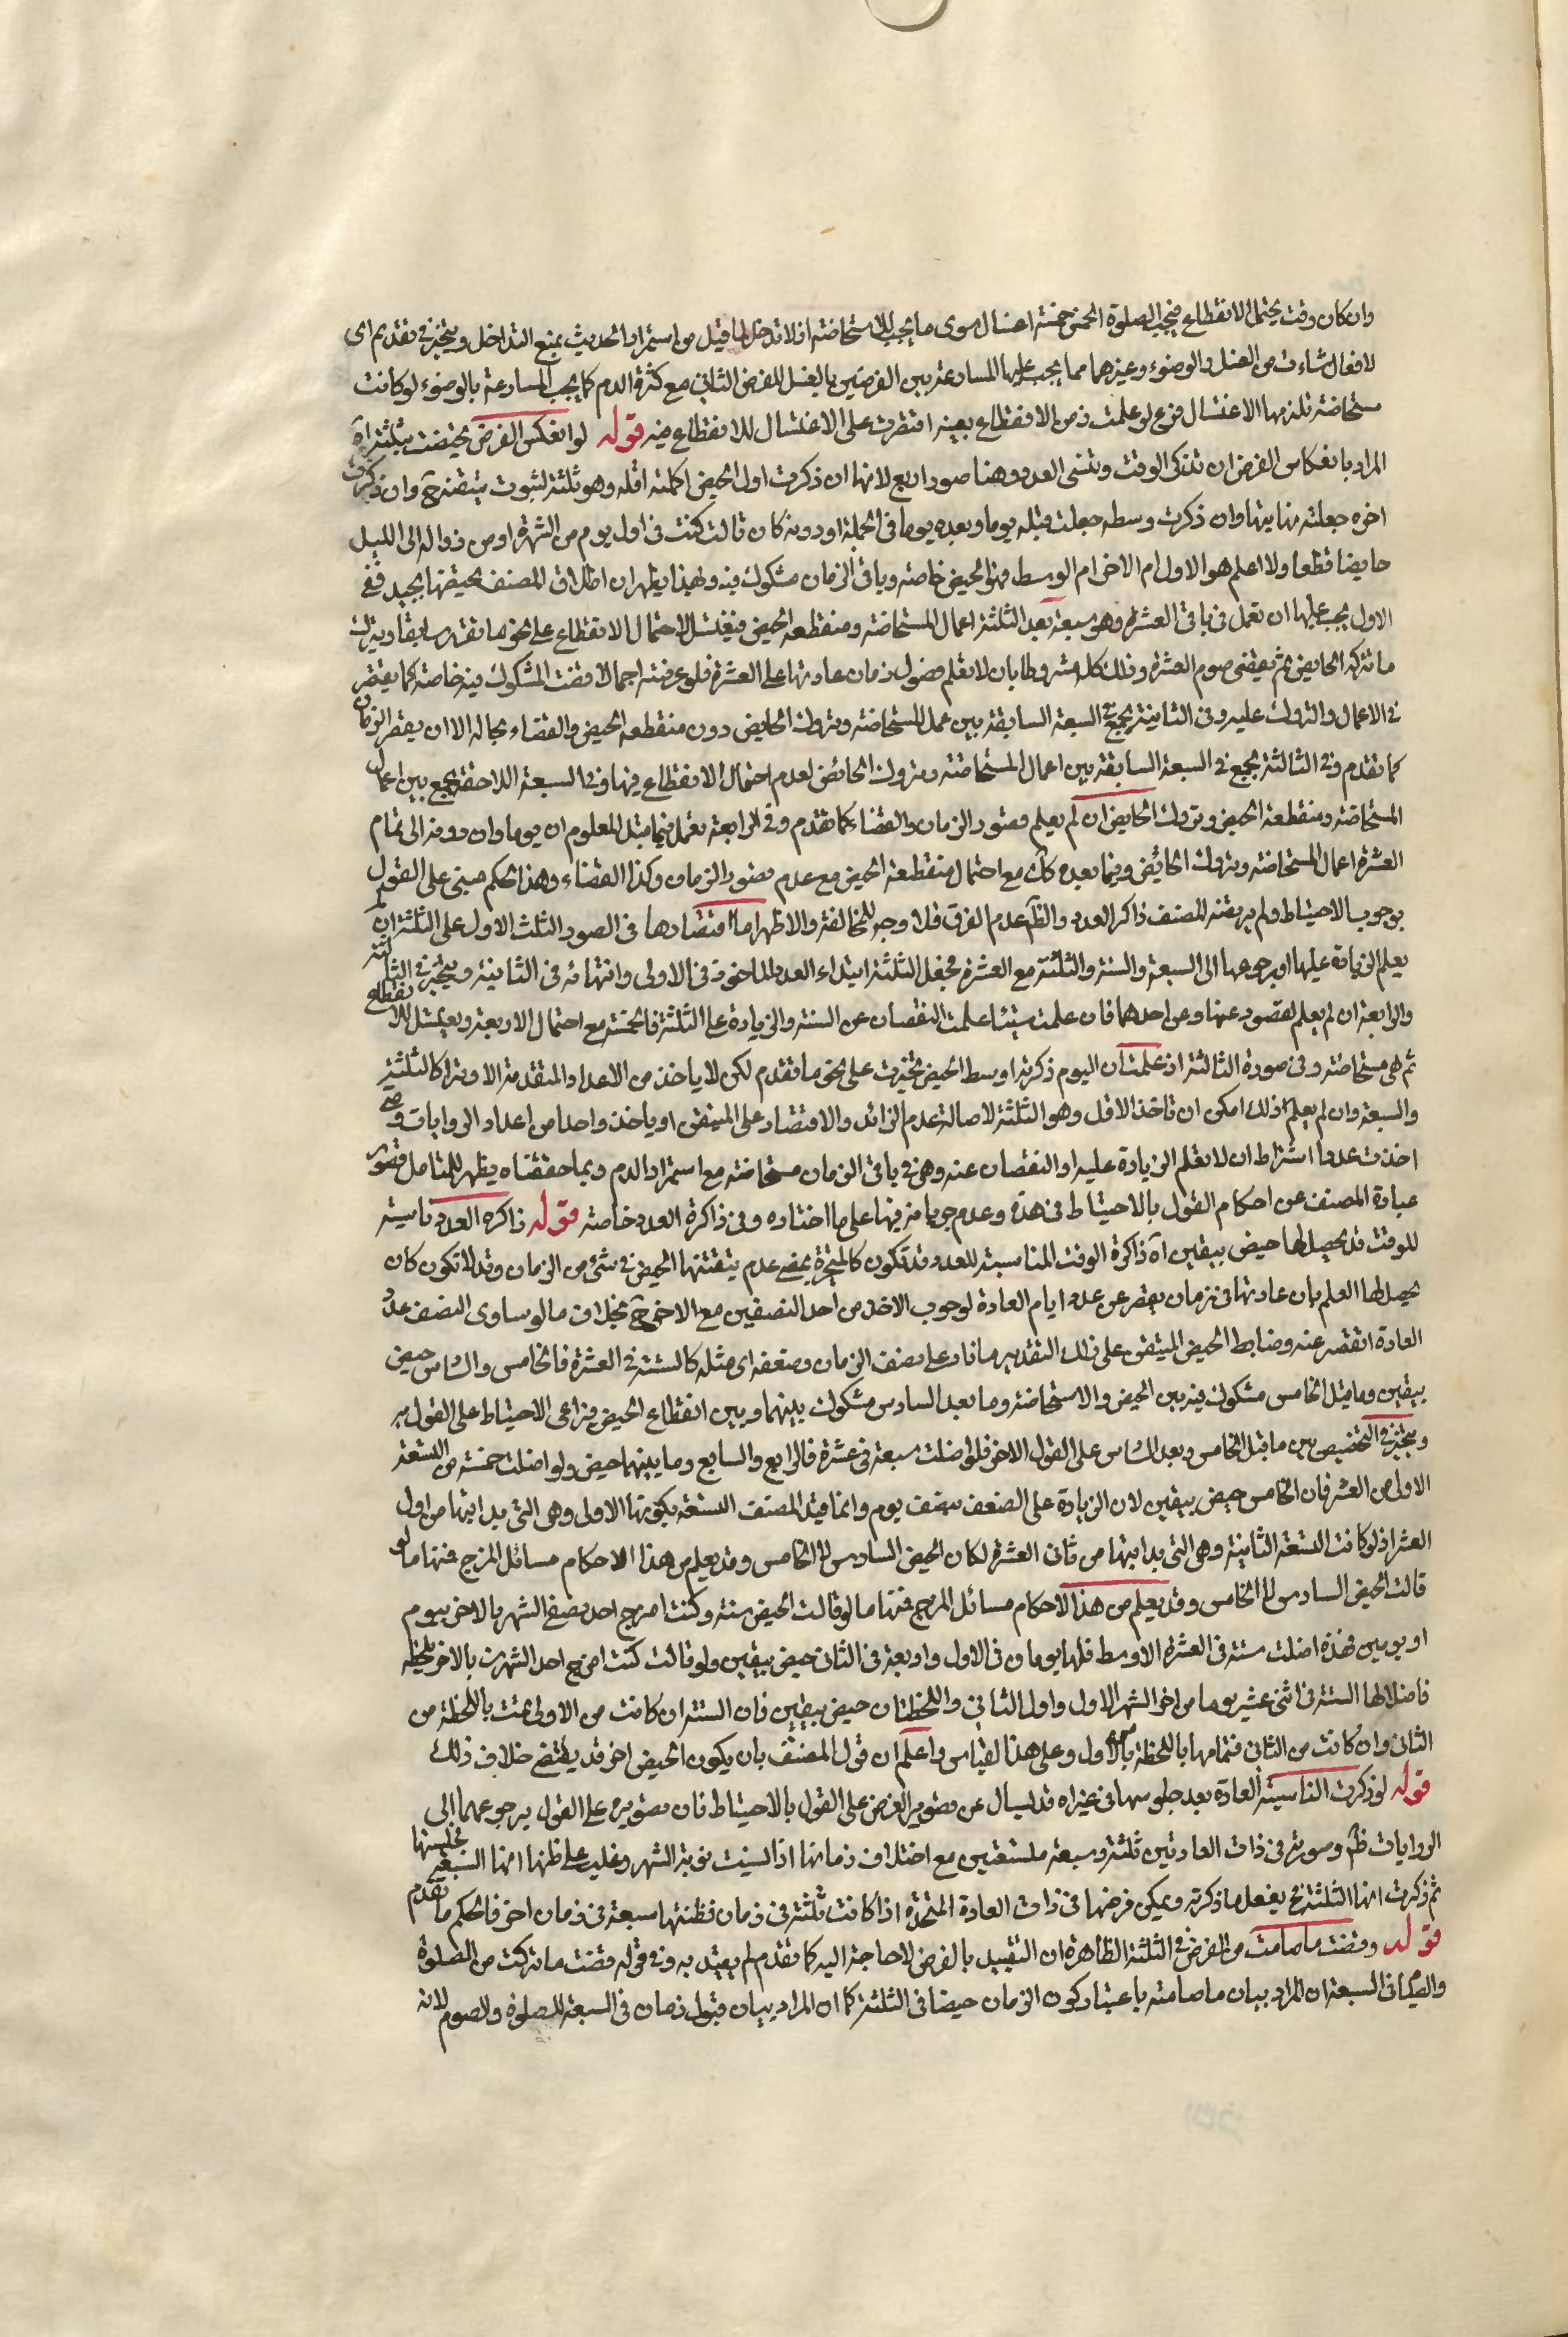 وان كان وقت يحتمل الانقطاع فيجب للصلوة الخمس خمسة اغسال سوى ما يجب للاستحاضة اذ لا تداخل لما قيل من استمرار الحدث يمنع التداخل ويتخير في تقديم اى
الافعال شاءت من الغسل والوضوء وغيرهما مما يجب عليها المسارعة بين الفرضين بالغسل للفرض الثاني مع كثرة الدم كما يجب المسارعة بالوضوء لو كانت
مستحاضة تلزمها الاغتسال فرع لو علمت زمن الانقطاع بعينه اقتصرت على الاغتسال للانقطاع فيه قوله لو انعكس الفرض تحيضت بثلثة اه
المراد بانعكاس الفرض ان تذكر الوقت وتنسى العدد وهنا صور اربع لانها ان ذكرت اول الحيض اكملته اقله وهو ثلثة لثبوت تيقنه ح وان ذكرت
اخره جعلته نهايتها وان ذكرت وسطه جعلت قبله يوما وبعده يوما في الجملة او دونه كان قالت كنت في اول يوم من الشهر او من زواله الى الليل
حايضا قطعا ولا اعلم هو الاول ام الاخر ام الوسط فهو الحيض خاصة وباقي الزمان مشكوك فيه وبهذا يظهر ان اطلاق المصنف تحيضها بجيد ففى
الاول يجب عليها ان تعمل في باقي العشرة وهو سبعة بعد الثلثة اعمال المستحاضة ومنقطعه الحيض فتغتسل لاحتمال الانقطاع على نحو ما تقدم سابقا وبترك
ما تتركه الحايض ثم تقضى صوم العشرة وذلك كله مشروط بان لا تعلم قصور زمان عادتها على العشرة فلو عرفته اجمالا قضت المشكوك فيه خاصة كما يقتصر
في الاعمال والتروك عليه وفى الثانية تجمع في السبعة السابقة بين عمل المستحاضة وتروك الحايض دون منقطعه الحيض والقضاء بحاله الا ان يقصر الزمان
كما تقدم وفى الثالثة تجمع في السبعة السابقة بين اعمال المستحاضة وتروك الحائض لعدم احتمال الانقطاع فيها وفى السبعة اللاحقة تجمع بين اعمال
المستحاضة ومنقطعة الحيض وتروك الحايض ان لم يعلم قصور الزمان والقضاء كما تقدم وفى الرابعة تعمل فيما قبل المعلوم ان يوما وان دونه الى تمام
العشرة اعمال المستحاضة وتروك الحائض وفيما بعده كك مع احتمال منقطعة الحيض مع عدم قصور الزمان وكذا القضاء وهذا الحكم مبنى على القول
بوجوب الاحتياط ولم يرتضه المصنف ذاكر العدد والظ عدم الفرق فلا وجه للمخالفة والاظهر اما اقتصارها في الصور الثلث الاول على الثلثة ان لم
يعلم الزيادة عليها او برجوعها الى السبعة والستة والثلثة مع العشرة فيجعل الثلثة ابتداء العدد الماخوذ في الاولى وانتهائه في الثانية ويتخير في الثالثة
والرابعة ان لم يعلم لقصور عنها وعن احدهما فان علمت شيئا علمت النقصان عن الستة والزيادة على الثلثة فالخمسة مع احتمال الاربعة ويغتسل للانقطاع
ثم هى مستحاضة وفى صورة الثالثة اذ علمت ان اليوم ذكرته اوسط الحيض تخيرت على نحو ما تقدم لكن لا ياخذ من الاعداد المتقدمة الا وترا كالثلثة
والسبعة وان لم يعلم ذلك امكن ان تاخذ الاقل وهو الثلثة لاصالة عدم الزائد والاقتصار على المتيقن او ياخذ واحدا من اعداد الروايات وفى
اخذت عددا اشتراط ان لا تعلم الزيادة عليه او النقصان عنه وهى في باقي الزمان مستحاضة مع استمرار الدم وبما حققناه يظهر للمتامل قصور
عبارة المصنف عن احكام القول بالاحتياط في هذه وعدم جريانه فيها على ما اختاره وفى ذاكرة العدد خاصة قوله ذاكره العدد ناسية
للوقت قد يحصل لها حيض بيقين اه ذاكرة الوقت المناسبة للعدد قد تكون كالمتحيرة بمعنى عدم يتقنها الحيض في شئ من الزمان وقد لا تكون كان
يحصل لها العلم بان عادتها في زمان يقصر عن عدد ايام العادة لوجوب الاخذ من احد النصفين مع الاخر ح بخلاف ما لو ساوى النصف عدد
العادة انقصر عنه وضابط الحيض المتيقن على ذلك التقدير ما زاد على نصف الزمان وضعفه اى مثله كالستة في العشرة فالخامس والسادس حيض
بيقين وما قبل الخامس مشكوك فيه بين الحيض والاستحاضة وما بعد السادس مشكوك بينهما وبين انقطاع الحيض فتراعى الاحتياط على القول به
ويتخير في التخصيص بين ما قبل الخامس وبعد السادس على القول الاخر فلو اضلت سبعة في عشرة فالرابع والسابع وما بينهما حيض ولو اضلت خمسة من التسعة
الاولى من العشر فان الخامس حيض بيقين لان الزيادة على الضعف نصف يوم وانما قيل المصنف التسعة بكونها الاولى وهى التي بدايتها من اول
العشر اذ لو كانت التسعة الثانية وهى التي بدايتها من ثاني العشرة لكان الحيض السادس لا الخامس وقد يعلم من هذا الاحكام مسائل المزج فمنها ما لو
قالت الحيض السادس لا الخامس وقد يعلم من هذا الاحكام مسائل المزج فمنها ما لو قالت الحيض ستة وكنت امزج احد نصفى الشهر بالاخر بيوم
او يومين فهذه اضلت ستة في العشرة الاوسط فلها يومان في الاول واربعة في الثاني حيض بيقين ولو قالت كنت امزج احد الشهرين بالاخر بلحظة
فاضلالها الستة في اثنى عشر يوما من اخر الشهر الاول واول الثاني واللحظتان حيض بيقين فان الستة ان كانت من الاولى تمت باللحظة من
الثاني وان كانت من الثاني فتمامها باللحظة بالاول وعلى هذا القياس واعلم ان قول المصنف بان يكون الحيض اخر قد يقتضى خلاف ذلك
قوله لو ذكرت الناسية العادة بعد جلوسها في غيراه قد يسال عن تصوير الفرض على القول بالاحتياط فان تصويره على القول برجوعهما الى
الروايات ظ وصورته في ذات العادتين ثلثة وسبعة ملتفتين مع اختلاف زمانها اذا نسيت نوبة الشهر وغلب على ظنها انها السبعة فجلستها
ثم ذكرت انها الثلثة ح يفعل ما ذكرته ويمكن فرضها في ذات العادة المتحدة اذا كانت ثلثة في زمان فظنتها سبعة في زمان اخر فالحكم ما تقدم
قوله وقضت ما صامت من الفرض في الثلثة الظاهرة ان التقييد بالفرض لا حاجة اليه كما تقدم لم يقيد به وفى قوله قضت ما تركت من الصلوة
والصيام في السبعة ان المراد ببيان ما صامته باعتبار كون الزمان حيضا في الثلثة كما ان المراد ببيان قبول زمان في السبعة للصلوة والصوم لانه